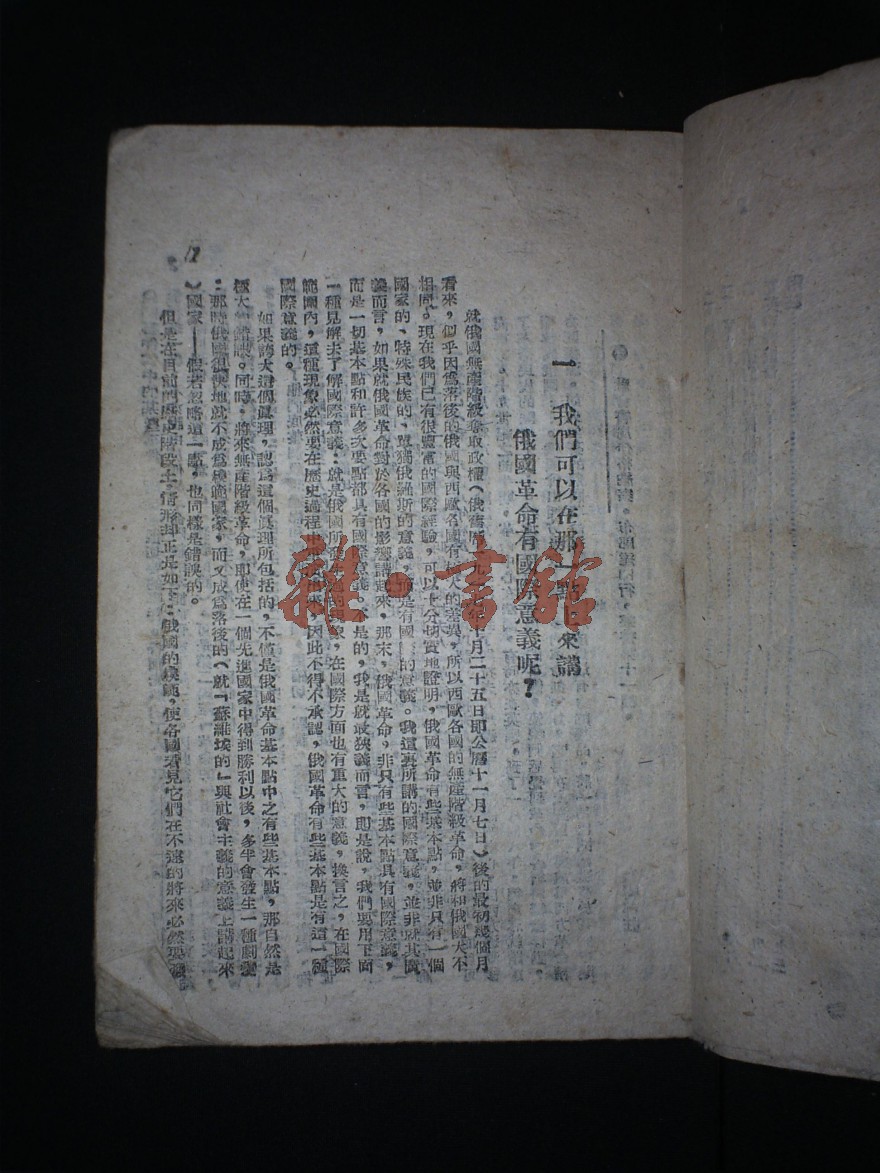 一 我們可以在那一點上來講
俄國革命有國際意義呢？
就俄國無產階級奪取政權（俄舊曆一九一七年十月二十五日即公曆十一月七日）後的最初幾個月
看來，似乎因爲落後的俄國與西歐各國有極大的差異，所以西歐各國的無產階級革命，將和俄國大不
相同。現在我們已有很豐富的國際經驗，可以十分切實地證明，俄國革命有些基本點，並非只有一個
國家的、特殊民族的、單獨俄羅斯的意義，而是有國際的意義。我這裏所講的國際意義，並非就其廣
義而言，如果就俄國革命對於各國的影響講起來，那末，俄國革命，非只有些基本點具有國際意義，
而是一切基本點和許多次要點都具有國際意義。不是的，我是就最狹義而言，即是說，我們要用下面
一種見解去了解國際意義：就是俄國所發生過的現象，在國際方面也有重大的意義，換言之，在國際
範圍內，這種現象必然要在歷史過程中重演出來，因此不得不承認，俄國革命有些基本點是有這一種
國際意義的。
如果誇大這個眞理，認爲這個眞理所包括的，不僅是俄國革命基本點中之有些基本點，那自然是
極大的錯誤。同時，將來無產階級革命，即使在一個先進國家中得到勝利以後，多半會發生一種劇變
：那時俄國很快地就不成爲模範國家，而又成爲落後的（就『蘇維埃的』與社會主義的意義上講起來
）國家——假若忽略這一點，也同樣是錯誤的。
但是在目前的歷史階段上，情形却正是如下：俄國的模範，使各國看見它們在不遠的將來必然要
雜·書館